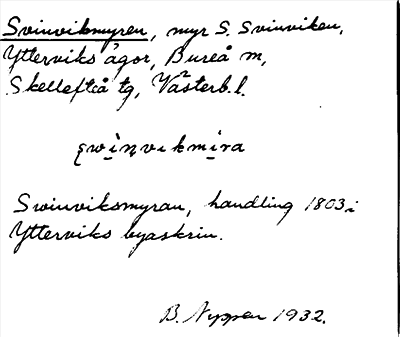 Svinviksmyren, myr S. Svinviken,
Ytterviks ägor, Bureå m,
Skellefteå tg, Västerb.l.
Svinviksmyran, handling 1803 i
Ytterviks byaskrin.
B. Nyppen 1932.